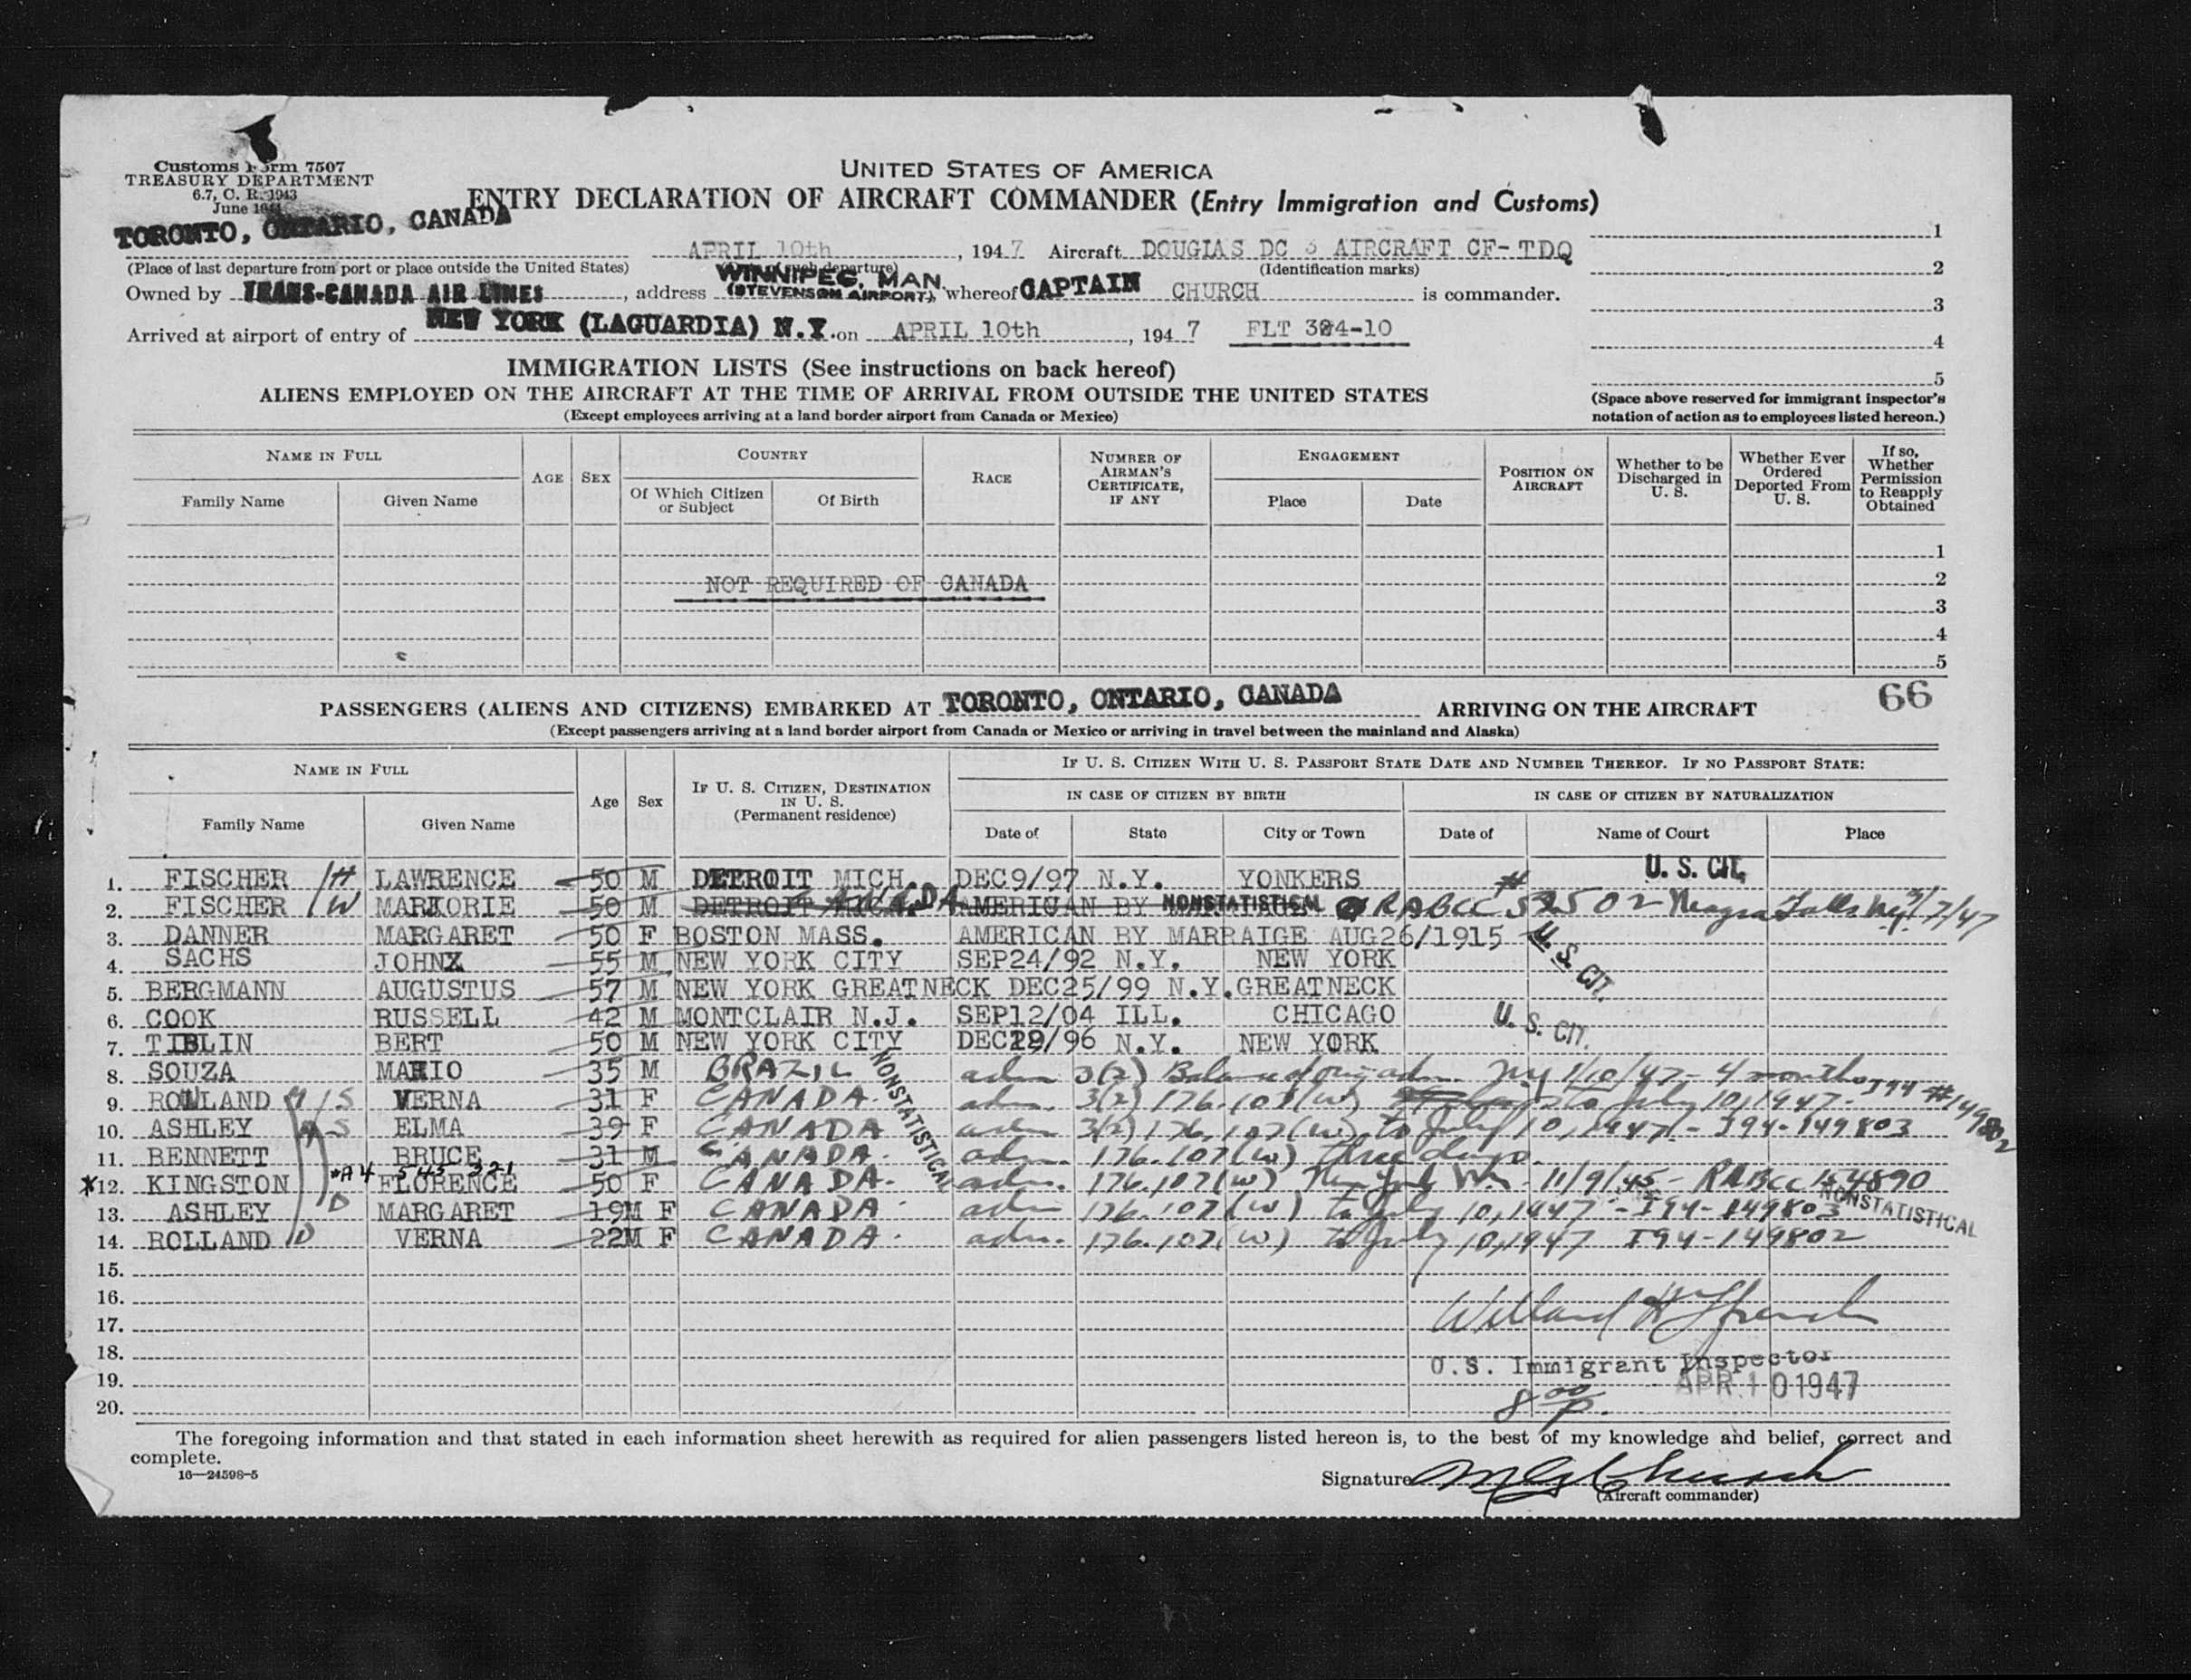 Customs Form 7507
TREASURY DEPARTMENT
6.7, C. R. 1943
June
UNITED STATES OF AMERICA
ENTRY DECLARATION OF AIRCRAFT COMMANDER (Entry Immigration and Customs)
TORONTO, ONTARIO, CANADA APRIL 10th, 1947 Aircraft DOUGLAS DC 3 AIRCRAFT CF-TDQ
(Place of last departure from port or place outside the United States) (Identification marks)
WINNIPEG, MAN.
Owned by TRANS-CANADA AIR LINES, address (STEVENSON AIRPORT), whereof CAPTAIN CHURCH is commander.
Arrived at airport of entry of NEW YORK (LAGUARDIA) N.Y. on APRIL 10th, 1947 FLT 324-10
1
2
3
4
5
(Space above reserved for immigrant inspector's
notation of action as to employees listed hereon.)
IMMIGRATION LISTS (See instructions on back hereof)
ALIENS EMPLOYED ON THE AIRCRAFT AT THE TIME OF ARRIVAL FROM OUTSIDE THE UNITED STATES
(Except employees arriving at a land border airport from Canada or Mexico)
NAME IN FULL
Family Name Given Name
AGE SEX
COUNTRY
Of Which Citizen or Subject Of Birth
RACE
NUMBER OF AIRMAN'S CERTIFICATE, IF ANY
ENGAGEMENT
Place Date
POSITION ON AIRCRAFT
Whether to be Discharged in U. S.
Whether Ever Ordered Deported From U. S.
If so, Whether Permission to Reapply Obtained
1
NOT REQUIRED OF CANADA 2
3
4
5
66
PASSENGERS (ALIENS AND CITIZENS) EMBARKED AT TORONTO, ONTARIO, CANADA ARRIVING ON THE AIRCRAFT
(Except passengers arriving at a land border airport from Canada or Mexico or arriving in travel between the mainland and Alaska)
NAME IN FULL
Family Name Given Name
Age Sex
IF U. S. CITIZEN, DESTINATION IN U. S. (Permanent residence)
IF U. S. CITIZEN WITH U. S. PASSPORT STATE DATE AND NUMBER THEREOF. IF NO PASSPORT STATE:
IN CASE OF CITIZEN BY BIRTH IN CASE OF CITIZEN BY NATURALIZATION
Date of State City or Town Date of Name of Court Place
1. FISCHER H LAWRENCE 50 M DETROIT MICH. DEC9/97 N.Y. YONKERS U. S. CIT.
2. FISCHER W MARJORIE 50 M DETROIT CANADA AMERICAN BY NONSTATISTICAL RABCC #52502 Niagra Falls NY 3/7/47
3. DANNER MARGARET 50 F BOSTON MASS. AMERICAN BY MARRAIGE AUG26/1915
4. SACHS JOHN 55 M NEW YORK CITY SEP24/92 N.Y. NEW YORK U. S. CIT.
5. BERGMANN AUGUSTUS 57 M NEW YORK GREATNECK DEC25/99 N.Y. GREATNECK
6. COOK RUSSELL 42 M MONTCLAIR N.J. SEP12/04 ILL. CHICAGO U. S. CIT.
7. TIBLIN BERT 50 M NEW YORK CITY DEC29/96 N.Y. NEW YORK
8. SOUZA MARIO 35 M BRAZIL adm 3(2) Balance of orig adm. NY 1/10/47 - 4 months
9. ROLLAND M/S VERNA 31 F CANADA. adm. 3(2) 176.107(w) to July 10, 1947. I94 #149802
10. ASHLEY M/S ELMA 39 F CANADA adm 3(2) 176.107(w) to July 10, 1947 - I94-149803
11. BENNETT BRUCE 31 M CANADA. adm. 176.107(w) three days.
*A4 545 321
*12. KINGSTON FLORENCE 50 F CANADA. adm. 176.107(w) New York 11/9/45 - RABCC 154890
13. ASHLEY D MARGARET 19 F CANADA adm 176.107(w) to July 10, 1947 - I94-149803
14. ROLLAND D VERNA 22 F CANADA. adm. 176.107(w) to July 10, 1947 I94-149802
NONSTATISTICAL
NONSTATISTICAL
15.
16.
17.
18.
19.
20.
U.S. Immigrant Inspector
APR 10 1947
8 00 p.
The foregoing information and that stated in each information sheet herewith as required for alien passengers listed hereon is, to the best of my knowledge and belief, correct and
complete.
16—24598-5
Signature Church
(Aircraft commander)